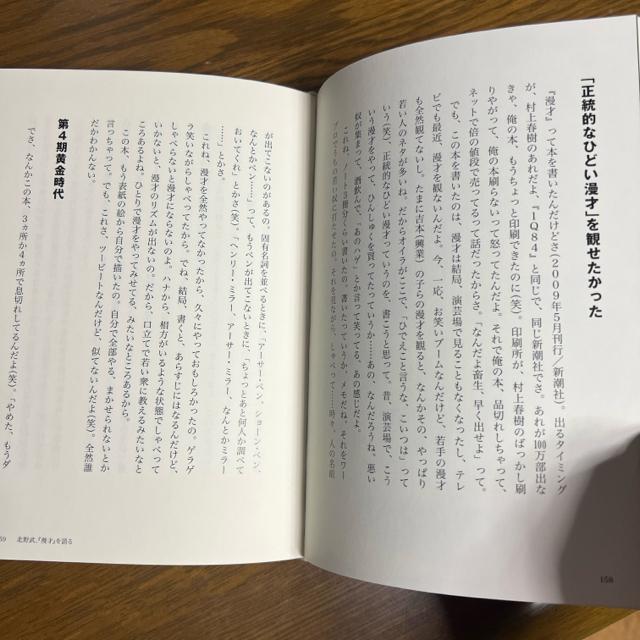 「正統的なひどい漫才」を観せたかった
『漫才』って本を書いたんだけどさ(2009年5月刊行／新潮社)。出るタイミング
が、村上春樹のあれだよ、『1Q84』と同じで、同じ新潮社でさ。あれが100万部出な
きゃ、俺の本、もうちょっと印刷できたのに(笑)。印刷所が、村上春樹のばっかし刷
りやがって、俺の本刷らないって怒ってたんだよ。それで俺の本、品切れしちゃって、
ネットで倍の値段で売ってるって話だったからさ。「なんだよ畜生、早く出せよ」って。
でも、この本を書いたのは、漫才は結局、演芸場で見ることもなくなったし、テレ
ビでも最近、漫才を観ないんだよ。今、一応、お笑いブームなんだけど、若手の漫才
も全然観てないし。たまに吉本(興業)の子らの漫才を観ると、なんかその、やっぱり
若い人のネタが多いね。だからオイラがここで、「ひでえこと言うな、こいつは」って
いう(笑)、正統的なひどい漫才っていうのを、書こうと思って。昔、演芸場で、こう
いう漫才をやって、ひんしゅくを買ってたっていうか……あの、なんだろうね、悪い
奴が集まって、酒飲んで、「あのハゲ」とか言って笑ってる、あの感じだよ。
これね、ノート3冊分ぐらい書いたの。書いたっていうか、メモだね。それをワー
プロでうちの若い奴に打たせたの。それを見ながら、しゃべって……時々、人の名前
158
が出てこないのがあるの。固有名詞を並べるときに、「アーサー・ペン、ショーン・ペン、
なんとかペン……」って、もうペンが出てこないときに、「ちょっとあと何人か調べて
おいてくれ」とかさ(笑)。「ヘンリー・ミラー、アーサー・ミラー、なんとかミラー
……」とかさ。
これね、漫才を全然やってなかったから、久々にやっておもしろかったの。ゲラゲ
ラ笑いながらしゃべってたから。でね、結局、書くと、あらすじにはなるんだけど、
しゃべらないと漫才にならないのよ。ハナから、相方がいるような状態でしゃべって
いかないと、漫才のリズムが出ないの。だから、口立てで若い衆に教えるみたいなと
ころあるよね。ひとりで漫才をやってみせてる、みたいなところあるから。
この本、もう表紙の絵から自分で描いたの。自分で全部やる。まかせられないとか
言っちゃって。でも、これさ、ツービートなんだけど、似てないんだよ(笑)。全然誰
だかわかんない。
第4期黄金時代
でさ、なんかこの本、3ヵ所か4ヵ所で息切れしてるんだよ(笑)。「やめた、もうダ
59 北野武、「漫才」を語る